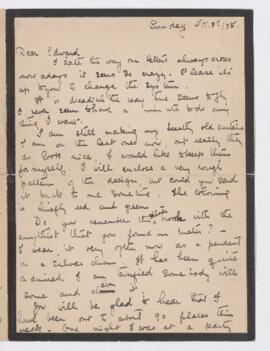 Sunday
Dear Edward
I hate the way our letters always cross
now adays it seems so crazy. Please it's
up to you to change the system.
It is dreadful the way time seems to fly
I never seem to have a minute to do any
thing I want.
I am still making my beastly old
I am on the last ones now, but really they
do look nice. I would like to keep them
for myself. I will enclose a very rough
pattern of the design, but could you send
it back to me some time. The colouring
is chiefly red and green
Do you remember the with the
amythist that you found in
I wear it very often now as a pendant
on a silver chain. It has been quite
admired I am afraid some body will
come and it
You will be glad to hear that I
have been out to about 90 places this
week. One night I was at a party